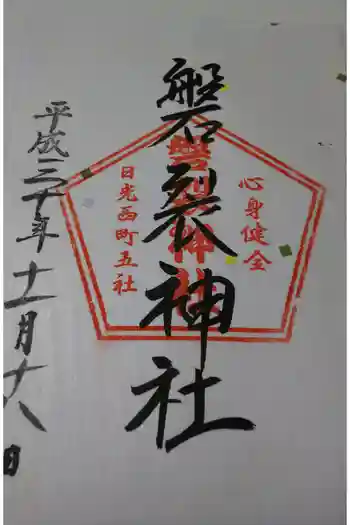 磐裂神社
心身健全
磐裂神社
日光西町五社
平成三十年十一月十八日